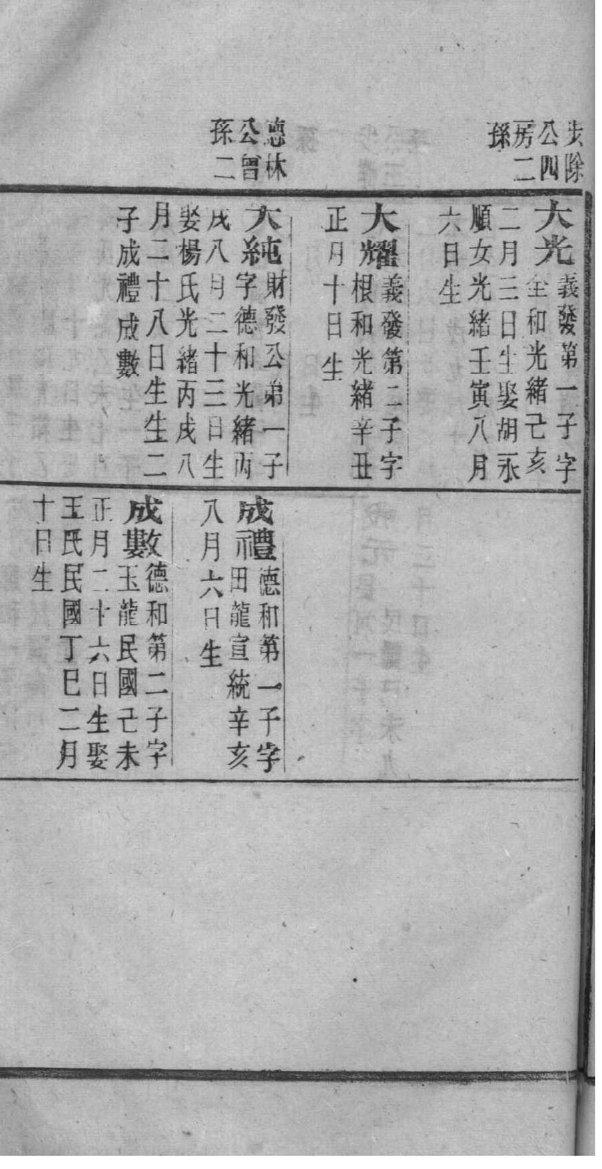 步除
公四
房二
孫
大光義發第一子字
全和光緒己亥
二月三日生娶胡永
順女光緒壬寅八月
六日生
大耀義發第二子字
根和光緒辛丑
正月十日生
德林
公曾
孫二
大純財發公弟一子
字德和光緒丙
戌八月二十三日生
娶楊氏光緒丙戌八
月二十八日生生二
子成禮成數
成禮德和第一子字
田龍宣統辛亥
八月六日生
成數德和第二子字
玉龍民國己未
正月二十六日生娶
王氏民國丁巳二月
十日生